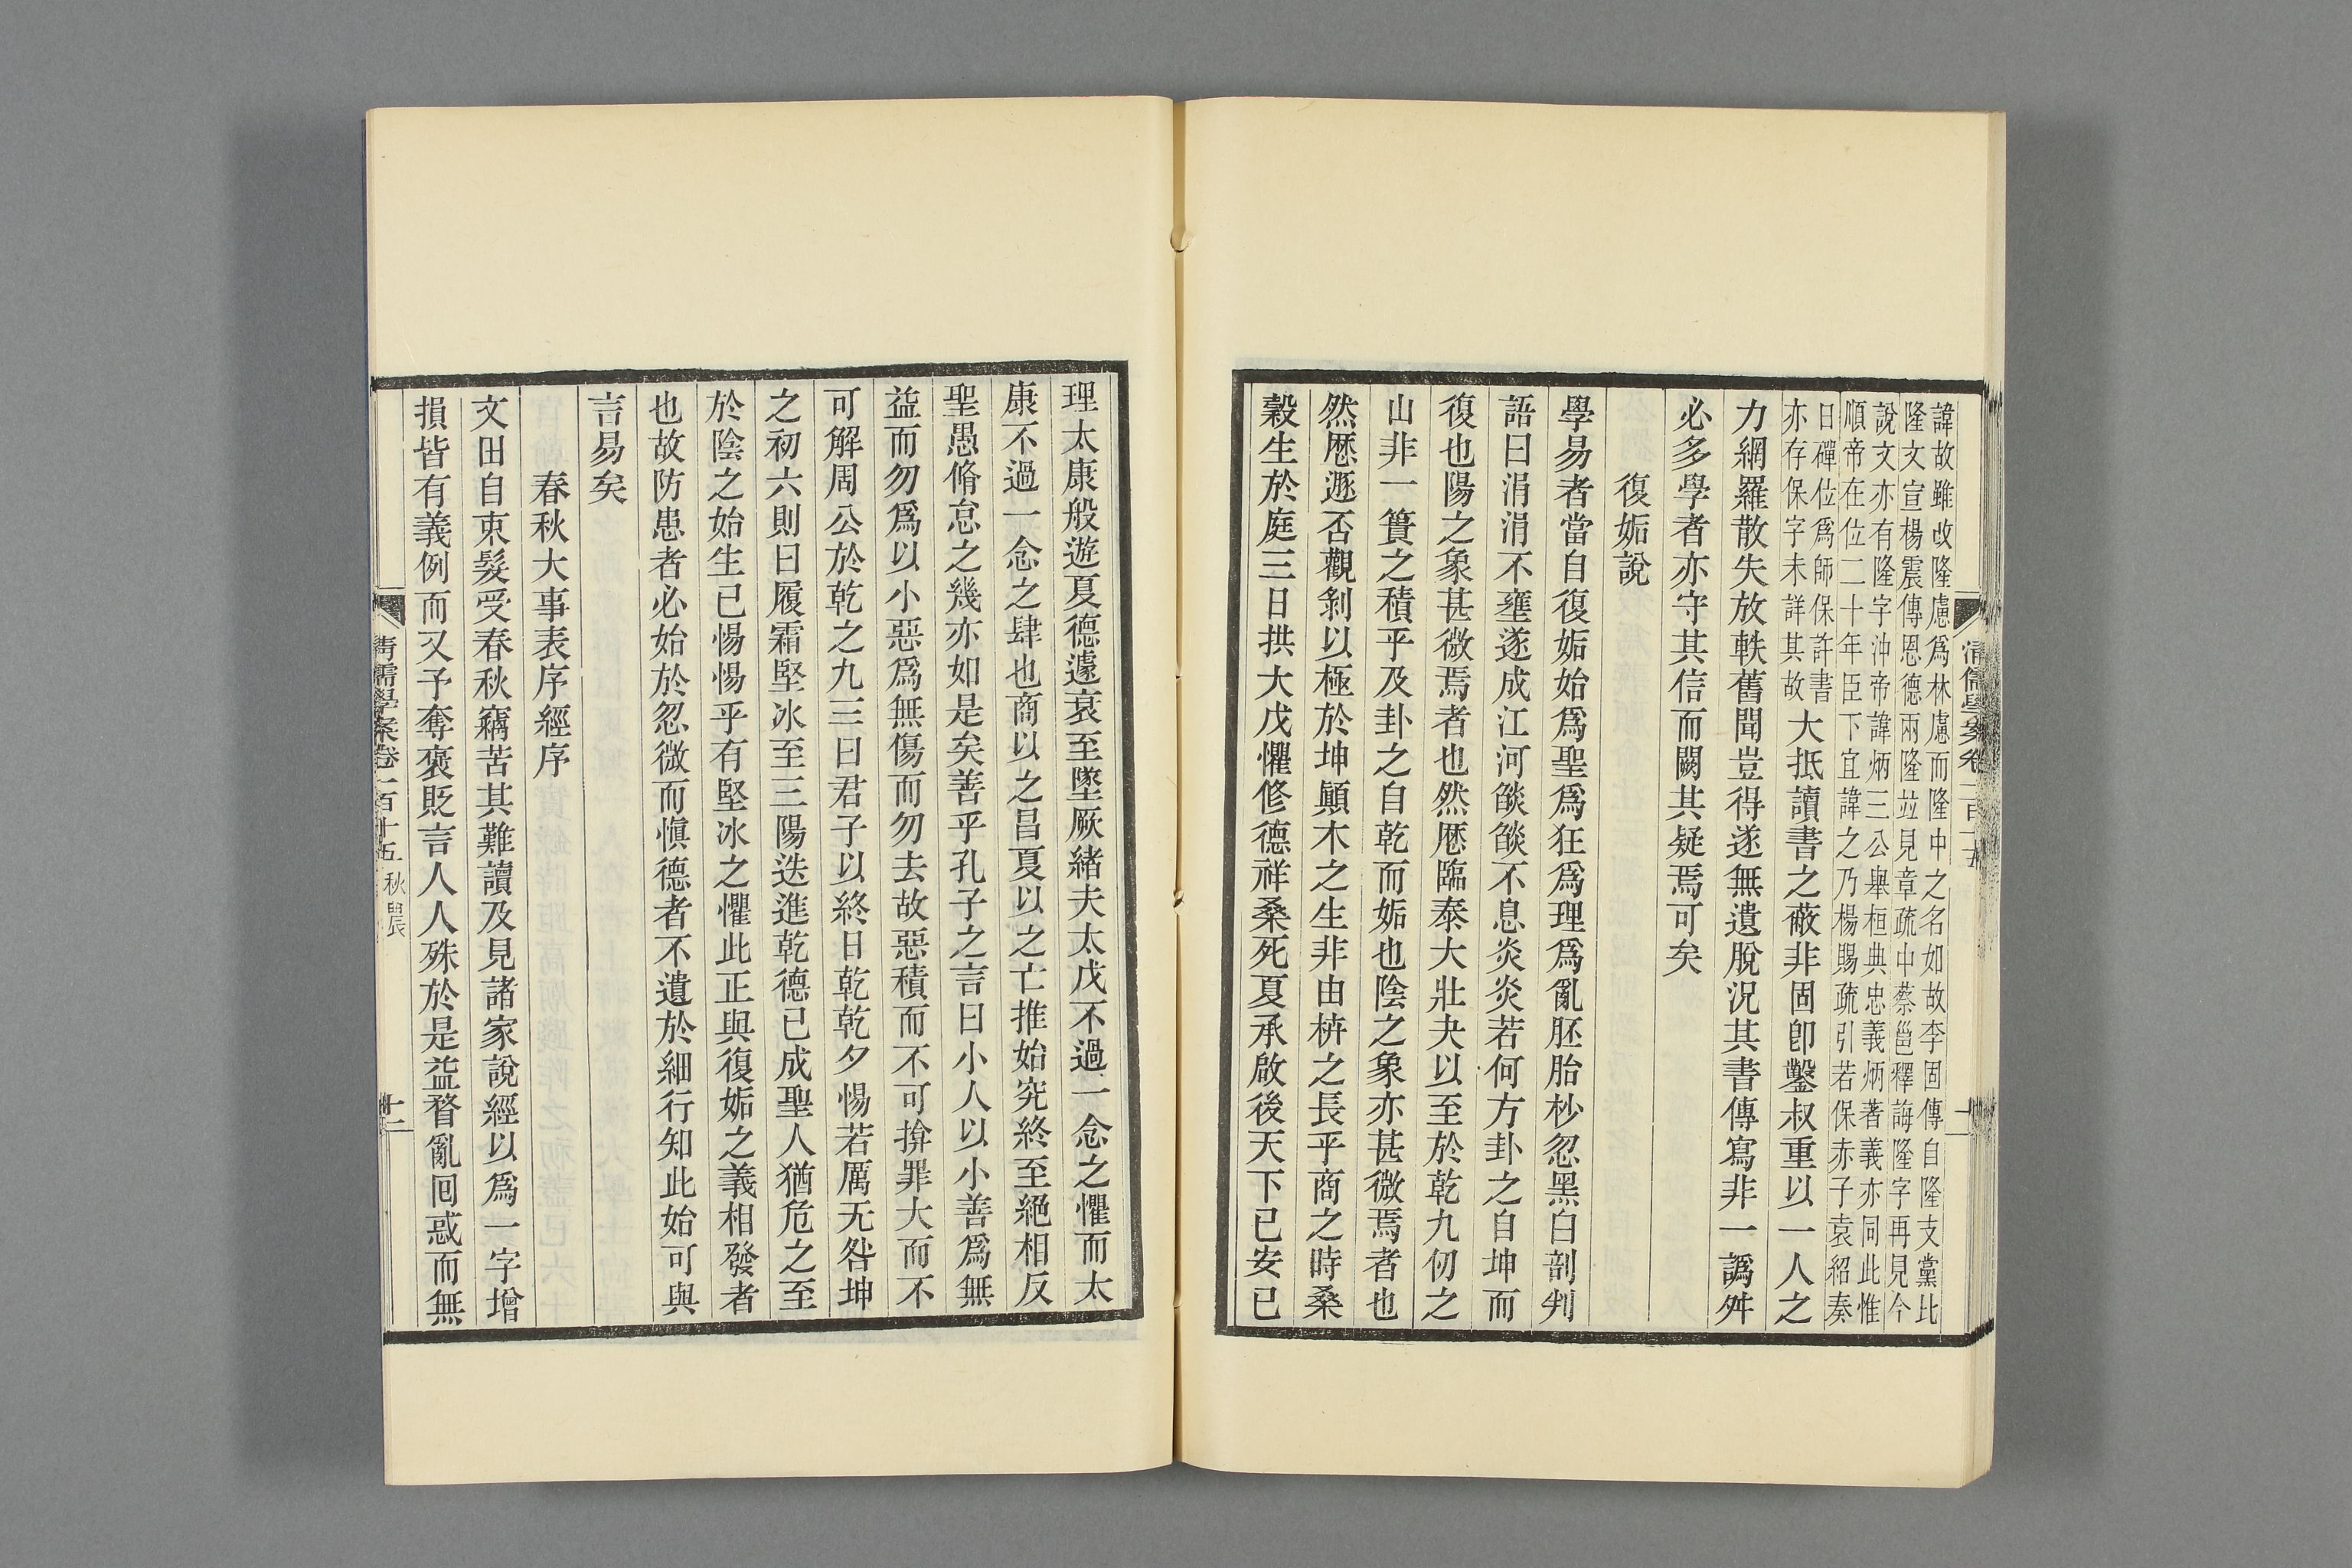 諱故雖改隆慮爲林慮而隆中之名如故李固傳自隆支黨比
隆文宣楊震傳恩德兩隆竝見章疏中蔡邕釋誨隆字再見今
說文亦有隆字沖帝諱炳三公舉桓典忠義炳著義亦同此惟
順帝在位二十年臣下宜諱之乃楊賜疏引若保赤子袁紹奏
日磾位爲師保許書
亦存保字未詳其故
大抵讀書之蔽非固卽鑿叔重以一人之
力網羅散失放軼舊聞豈得遂無遺脫況其書傳寫非一譌舛
必多學者亦守其信而闕其疑焉可矣
復姤說
學易者當自復姤始爲聖爲狂爲理爲亂胚胎杪忽黑白剖判
語曰涓涓不壅遂成江河燄燄不息炎炎若何方卦之自坤而
復也陽之象甚微焉者也然歷臨泰大壯夬以至於乾九仞之
山非一簣之積乎及卦之自乾而姤也陰之象亦甚微焉者也
然歷遯否觀剝以極於坤顚木之生非由枿之長乎商之時桑
穀生於庭三日拱大戊懼修德祥桑死夏承啟後天下已安已
理太康般遊夏德遽衰至墜厥緒夫太戊不過一念之懼而太
康不過一念之肆也商以之昌夏以之亡推始究終至絕相反
聖愚脩怠之幾亦如是矣善乎孔子之言曰小人以小善爲無
益而勿爲以小惡爲無傷而勿去故惡積而不可揜罪大而不
可解周公於乾之九三曰君子以終日乾乾夕惕若厲无咎坤
之初六則曰履霜堅冰至三陽迭進乾德已成聖人猶危之至
於陰之始生已惕惕乎有堅冰之懼此正與復姤之義相發者
也故防患者必始於忽微而愼德者不遺於細行知此始可與
言易矣
春秋大事表序經序
文田自束髮受春秋竊苦其難讀及見諸家說經以爲一字增
損皆有義例而又予奪褒貶言人人殊於是益瞀亂囘惑而無
清儒學案卷一百十五 秋農
十二